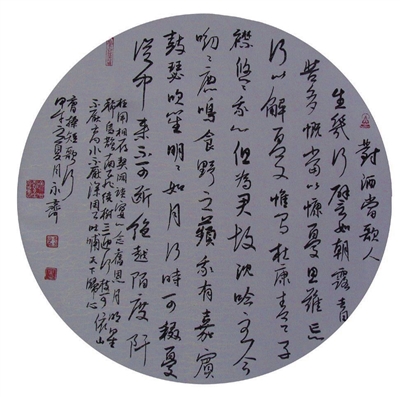 對酒當歌人
生幾何譬如朝露去日
苦多慨當以慷憂思難忘
何以解憂惟有杜康青青子
衿悠悠我心但為君故沈吟至今
呦呦鹿鳴食野之蘋我有嘉賓
鼓瑟吹笙明明如月何時可掇憂
從中來不可斷絕越陌度阡
枉用相存契闊談宴心念舊恩月明星
稀烏鵲南飛繞樹三匝何枝可依山
不厭高水不厭深周公吐哺天下歸心
曹操短歌行
夏月永壽